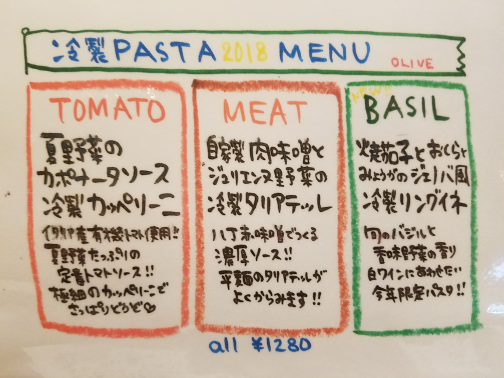 冷製PASTA 2018 MENU
OLIVE
TOMATO
夏野菜の
カポナータソース
冷製カッペリーニ
イタリア産有機トマト使用!!
夏野菜たっぷりの
定番トマトソース!!
極細のカッペリーニで
さっぱりどうぞ♡
MEAT
自家製肉味噌と
ジュリエンヌ野菜の
冷製タリアテッレ
八丁赤味噌でつくる
濃厚ソース!!
平麺のタリアテッレが
よくからみます!!
NEW!!
BASIL
焼茄子とおくらと
みょうがのジェノバ風
冷製リングイネ
旬のバジルと
香味野菜の香り
白ワインにあわせたい
今年限定パスタ!!
all ¥1280